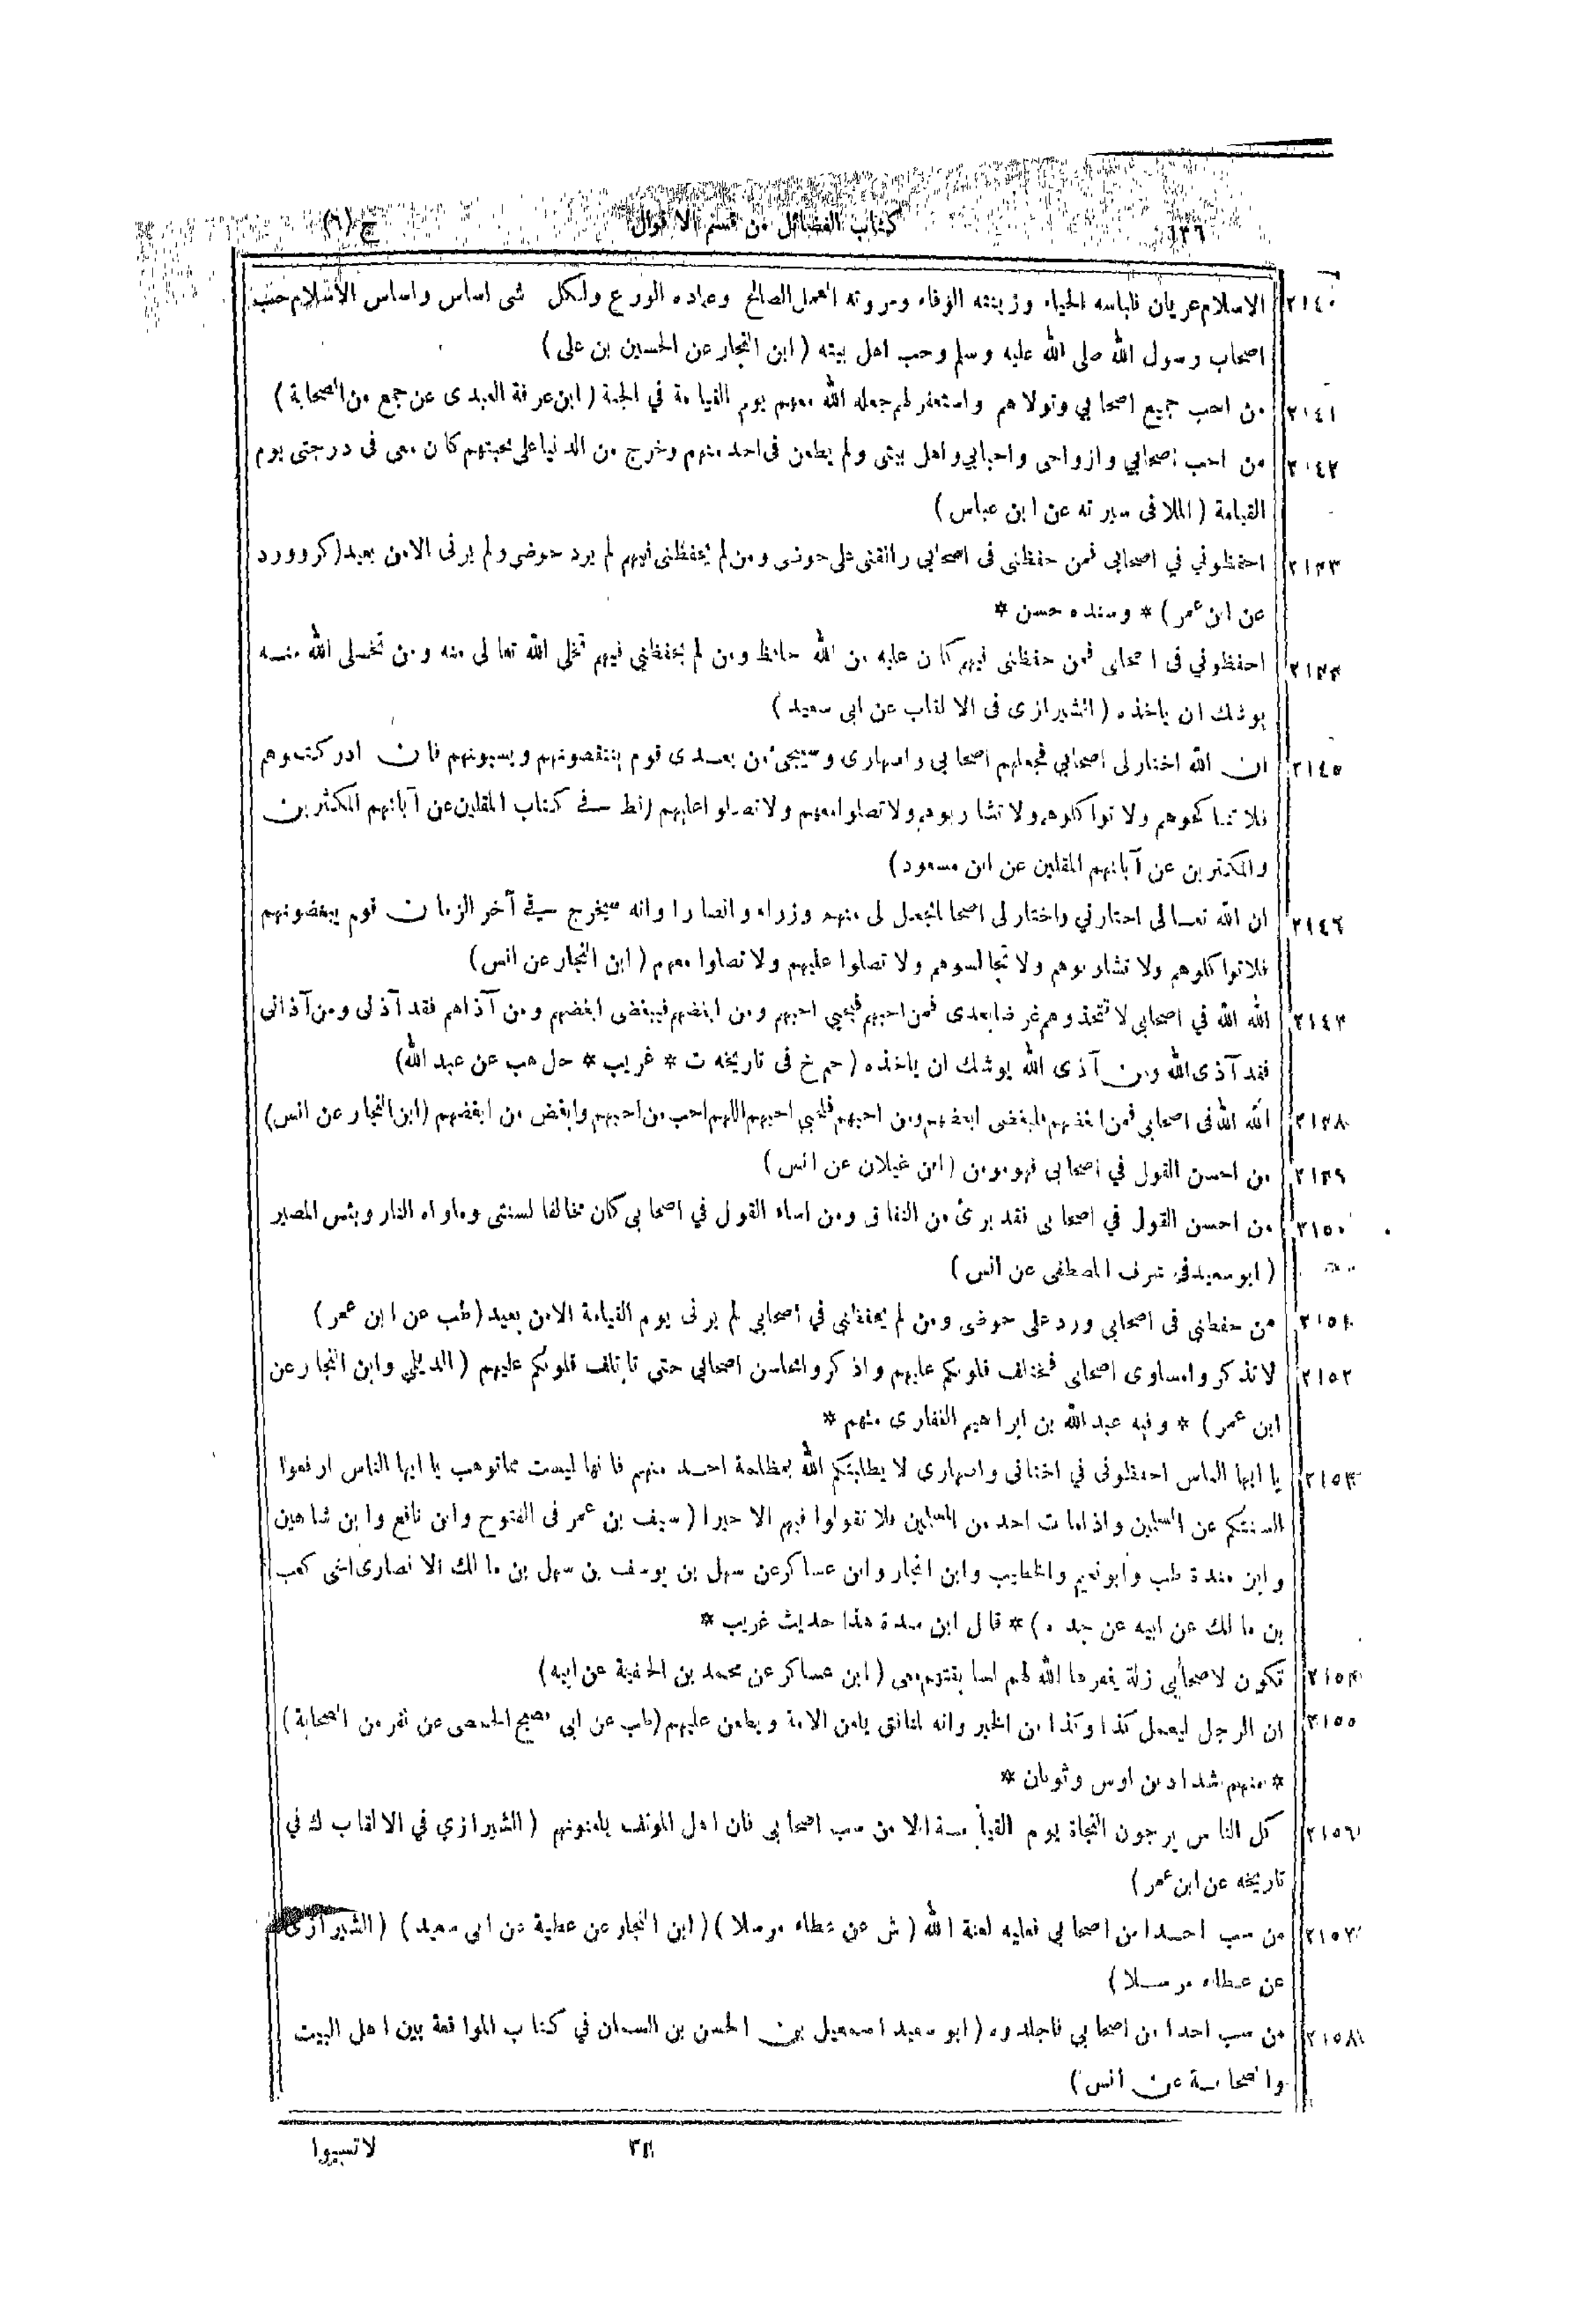 ١٣٦ كتاب الفضائل من قسم الاقوال ج (٦)
٢١٤٠ الاسلام عريان فلباسه الحياء وزينته الوفاء ومروته العمل الصالح وعماده الورع ولكل شى اساس واساس الاسلام حب
اصحاب رسول الله صلى الله عليه وسلم وحب اهل بيته (ابن النجار عن الحسين بن على)
٢١٤١ من احب جميع اصحابي وتولاهم واستغفر لهم جعله الله معهم يوم القيامة في الجنة (ابن عرفة العبدى عن جمع من الصحابة)
٢١٤٢ من احب اصحابي وازواجى واحبابي واهل بيتى ولم يطعن فى احد منهم وخرج من الدنيا على محبتهم كان معى فى درجتى يوم
القيامة (الملا فى سيرته عن ابن عباس)
٢١٤٣ احفظوني في اصحابي فمن حفظنى فى اصحابي رافقنى على حوضى ومن لم يحفظنى فيهم لم يرد حوضى ولم يرنى الا من بعيد (كر وورد
عن ابن عمر) * وسنده حسن *
٢١٤٤ احفظوني فى اصحابى فمن حفظنى فيهم كان عليه من الله حافظ ومن لم يحفظنى فيهم تخلى الله تعالى منه ومن تخلى الله منه
يوشك ان ياخذه (الشيرازى فى الالقاب عن ابى سعيد)
٢١٤٥ ان الله اختار لى اصحابي فجعلهم اصحابي واصهارى وسيجىء من بعدى قوم ينتقصونهم ويسبونهم فان ادركتموهم
فلا تناكحوهم ولا تواكلوهم ولا تشاربوهم ولا تصلوا معهم ولا تصلوا عليهم (قط في كتاب المقلين عن آبائهم المكثرين
والمكثرين عن آبائهم المقلين عن ابن مسعود)
٢١٤٦ ان الله تعالى اختارني واختار لى اصحابا فجعل لى منهم وزراء وانصارا وانه سيخرج في آخر الزمان قوم يبغضونهم
فلا تواكلوهم ولا تشاربوهم ولا تجالسوهم ولا تصلوا عليهم ولا تصلوا معهم (ابن النجار عن انس)
٢١٤٧ الله الله في اصحابي لا تتخذوهم غرضا بعدى فمن احبهم فبحبي احبهم ومن ابغضهم فببغضى ابغضهم ومن آذاهم فقد آذانى ومن آذانى
فقد آذى الله ومن آذى الله يوشك ان ياخذه (حم خ فى تاريخه ت * غريب * حل هب عن عبد الله)
٢١٤٨ الله الله فى اصحابي فمن ابغضهم فببغضى ابغضهم ومن احبهم فبحبي احبهم اللهم احب من احبهم وابغض من ابغضهم (ابن النجار عن انس)
٢١٤٩ من احسن القول في اصحابى فهو مومن (ابن غيلان عن انس)
٢١٥٠ من احسن القول في اصحابى فقد برئ من النفاق ومن اساء القول في اصحابى كان مخالفا لسنتى وماواه النار وبئس المصير
(ابو سعيد في شرف المصطفى عن انس)
٢١٥١ من حفظنى فى اصحابي ورد على حوضى ومن لم يحفظنى في اصحابي لم يرنى يوم القيامة الا من بعيد (طب عن ابن عمر)
٢١٥٢ لا تذكروا مساوى اصحابى فتختلف قلوبكم عليهم واذكروا محاسن اصحابى حتى تاتلف قلوبكم عليهم (الديلي وابن النجار عن
ابن عمر) * وفيه عبد الله بن ابراهيم الغفارى متهم *
٢١٥٣ يا ايها الناس احفظونى في اختانى واصهارى لا يطالبنكم الله بمظلمة احد منهم فانها ليست مما توهب يا ايها الناس ارفعوا
السنتكم عن المسلمين واذا مات احد من المسلمين فلا تقولوا فيهم الا خيرا (سيف بن عمر فى الفتوح وابن نافع وابن شاهين
وابن مندة طب وابو نعيم والخطيب وابن النجار وابن عساكر عن سهل بن يوسف بن سهل بن مالك الانصارى اخى كعب
بن مالك عن ابيه عن جده) * قال ابن مندة هذا حديث غريب *
٢١٥٤ تكون لاصحابي زلة يغفرها الله لهم لسابقتهم معى (ابن عساكر عن محمد بن الحنفية عن ابيه)
٢١٥٥ ان الرجل ليعمل كذا وكذا من الخير وانه لمنافق يلعن الامة ويطعن عليهم (طب عن ابى مصبح الحمصى عن نفر من الصحابة)
* منهم شداد بن اوس وثوبان *
٢١٥٦ كل الناس يرجون النجاة يوم القيامة الا من سب اصحابى فان اهل الموقف يلعنونهم (الشيرازي في الالقاب ك في
تاريخه عن ابن عمر)
٢١٥٧ من سب احدا من اصحابي فعليه لعنة الله (ش عن عطاء مرسلا) (ابن النجار عن عطية عن ابى سعيد) (الشيرازى
عن عطاء مرسلا)
٢١٥٨ من سب احدا من اصحابي فاجلدوه (ابو سعيد اسمعيل بن الحسن بن السمان في كتاب الموافقة بين اهل البيت
والصحابة عن انس)
لا تسبوا